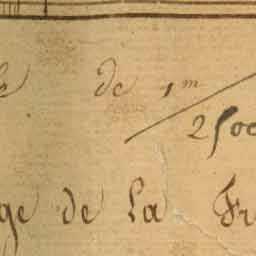 de 1m/2500
ge de La Fr